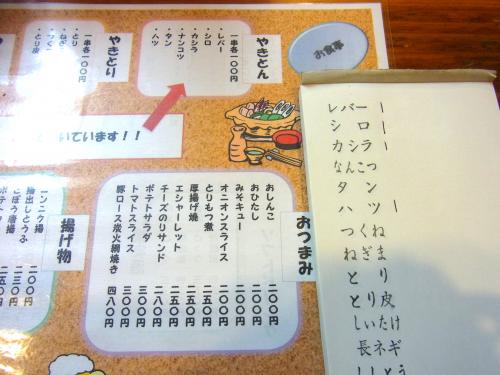 お食事
やきとん
一串各一〇〇円
・レバー
・シロ
・カシラ
・ナンコツ
・タン
・ハツ
やきとり
一串各一〇〇円
・とり
・ねぎ
・つく
・とり皮
いています！！
おつまみ
おしんこ 二〇〇円
おひたし 二〇〇円
みそキュー 二〇〇円
オニオンスライス 二〇〇円
とりもつ煮 二五〇円
厚揚げ焼 二五〇円
エシャーレット 二五〇円
チーズのりサンド 二〇〇円
ポテトサラダ 二五〇円
トマトスライス 三五〇円
豚ロース炭火網焼き 四八〇円
揚げ物
ンニク揚 二〇〇円
揚出しとうふ 三〇〇円
ごぼう唐揚 二五〇円
ポテト
レバー |
シロ |
カシラ |
なんこつ
タン
ハツ |
つくね
ねぎま
とり
とり皮
しいたけ
長ネギ
ししとう